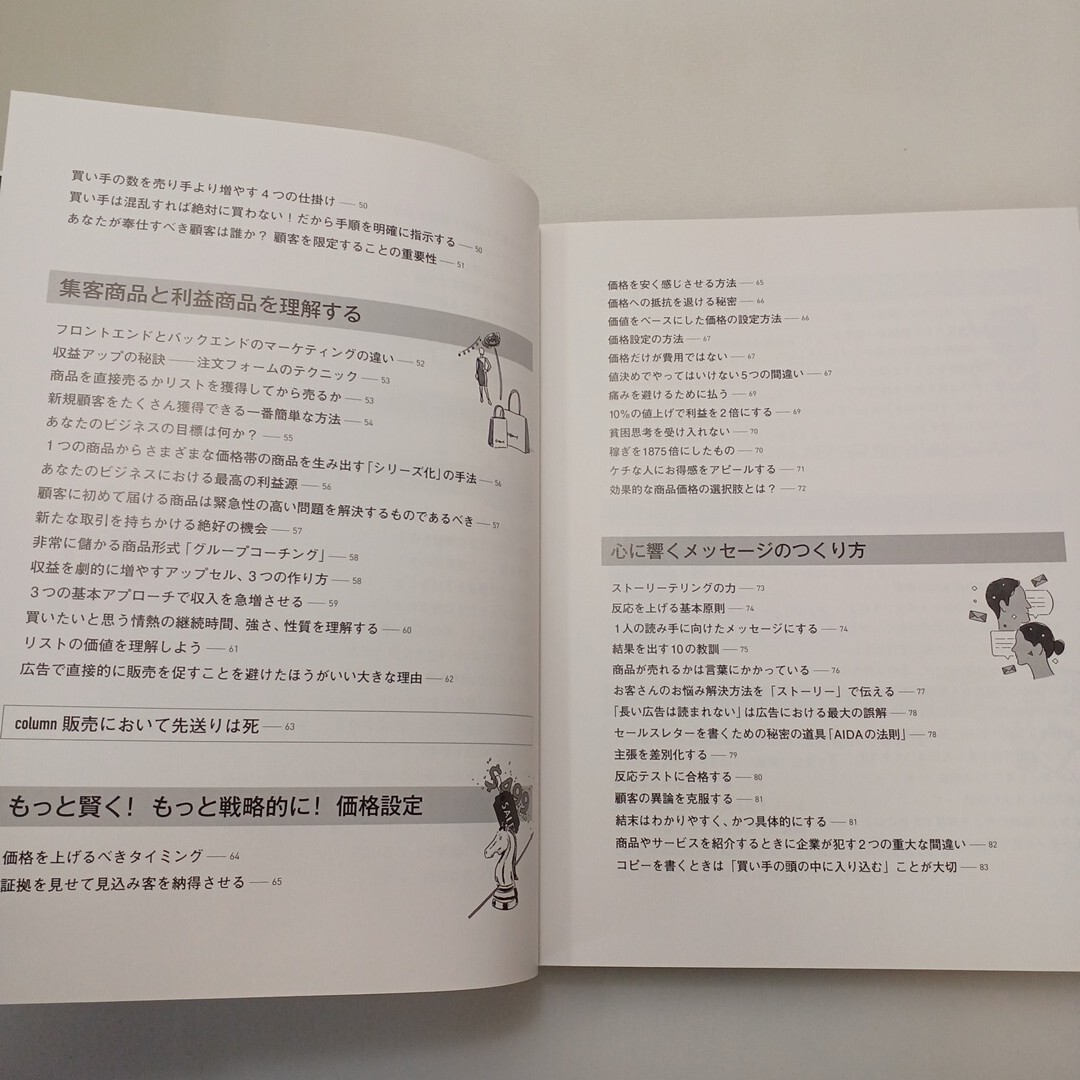 買い手の数を売り手より増やす4つの仕掛け ── 50
買い手は混乱すれば絶対に買わない！だから手順を明確に指示する ── 50
あなたが奉仕すべき顧客は誰か？ 顧客を限定することの重要性 ── 51
集客商品と利益商品を理解する
フロントエンドとバックエンドのマーケティングの違い ── 52
収益アップの秘訣──注文フォームのテクニック ── 53
商品を直接売るかリストを獲得してから売るか ── 53
新規顧客をたくさん獲得できる一番簡単な方法 ── 54
あなたのビジネスの目標は何か？ ── 55
1つの商品からさまざまな価格帯の商品を生み出す「シリーズ化」の手法 ── 56
あなたのビジネスにおける最高の利益源 ── 56
顧客に初めて届ける商品は緊急性の高い問題を解決するものであるべき ── 57
新たな取引を持ちかける絶好の機会 ── 57
非常に儲かる商品形式「グループコーチング」 ── 58
収益を劇的に増やすアップセル、3つの作り方 ── 58
3つの基本アプローチで収入を急増させる ── 59
買いたいと思う情熱の継続時間、強さ、性質を理解する ── 60
リストの価値を理解しよう ── 61
広告で直接的に販売を促すことを避けたほうがいい大きな理由 ── 62
column 販売において先送りは死 ── 63
もっと賢く！ もっと戦略的に！ 価格設定
価格を上げるべきタイミング ── 64
証拠を見せて見込み客を納得させる ── 65
価格を安く感じさせる方法 ── 65
価格への抵抗を退ける秘密 ── 66
価値をベースにした価格の設定方法 ── 66
価格設定の方法 ── 67
価格だけが費用ではない ── 67
値決めでやってはいけない5つの間違い ── 67
痛みを避けるために払う ── 69
10％の値上げで利益を2倍にする ── 69
貧困思考を受け入れない ── 70
稼ぎを1875倍にしたもの ── 70
ケチな人にお得感をアピールする ── 71
効果的な商品価格の選択肢とは？ ── 72
心に響くメッセージのつくり方
ストーリーテリングの力 ── 73
反応を上げる基本原則 ── 74
1人の読み手に向けたメッセージにする ── 74
結果を出す10の教訓 ── 75
商品が売れるかは言葉にかかっている ── 76
お客さんのお悩み解決方法を「ストーリー」で伝える ── 77
「長い広告は読まれない」は広告における最大の誤解 ── 78
セールスレターを書くための秘密の道具「AIDAの法則」 ── 78
主張を差別化する ── 79
反応テストに合格する ── 80
顧客の異論を克服する ── 81
結末はわかりやすく、かつ具体的にする ── 81
商品やサービスを紹介するときに企業が犯す2つの重大な間違い ── 82
コピーを書くときは「買い手の頭の中に入り込む」ことが大切 ── 83